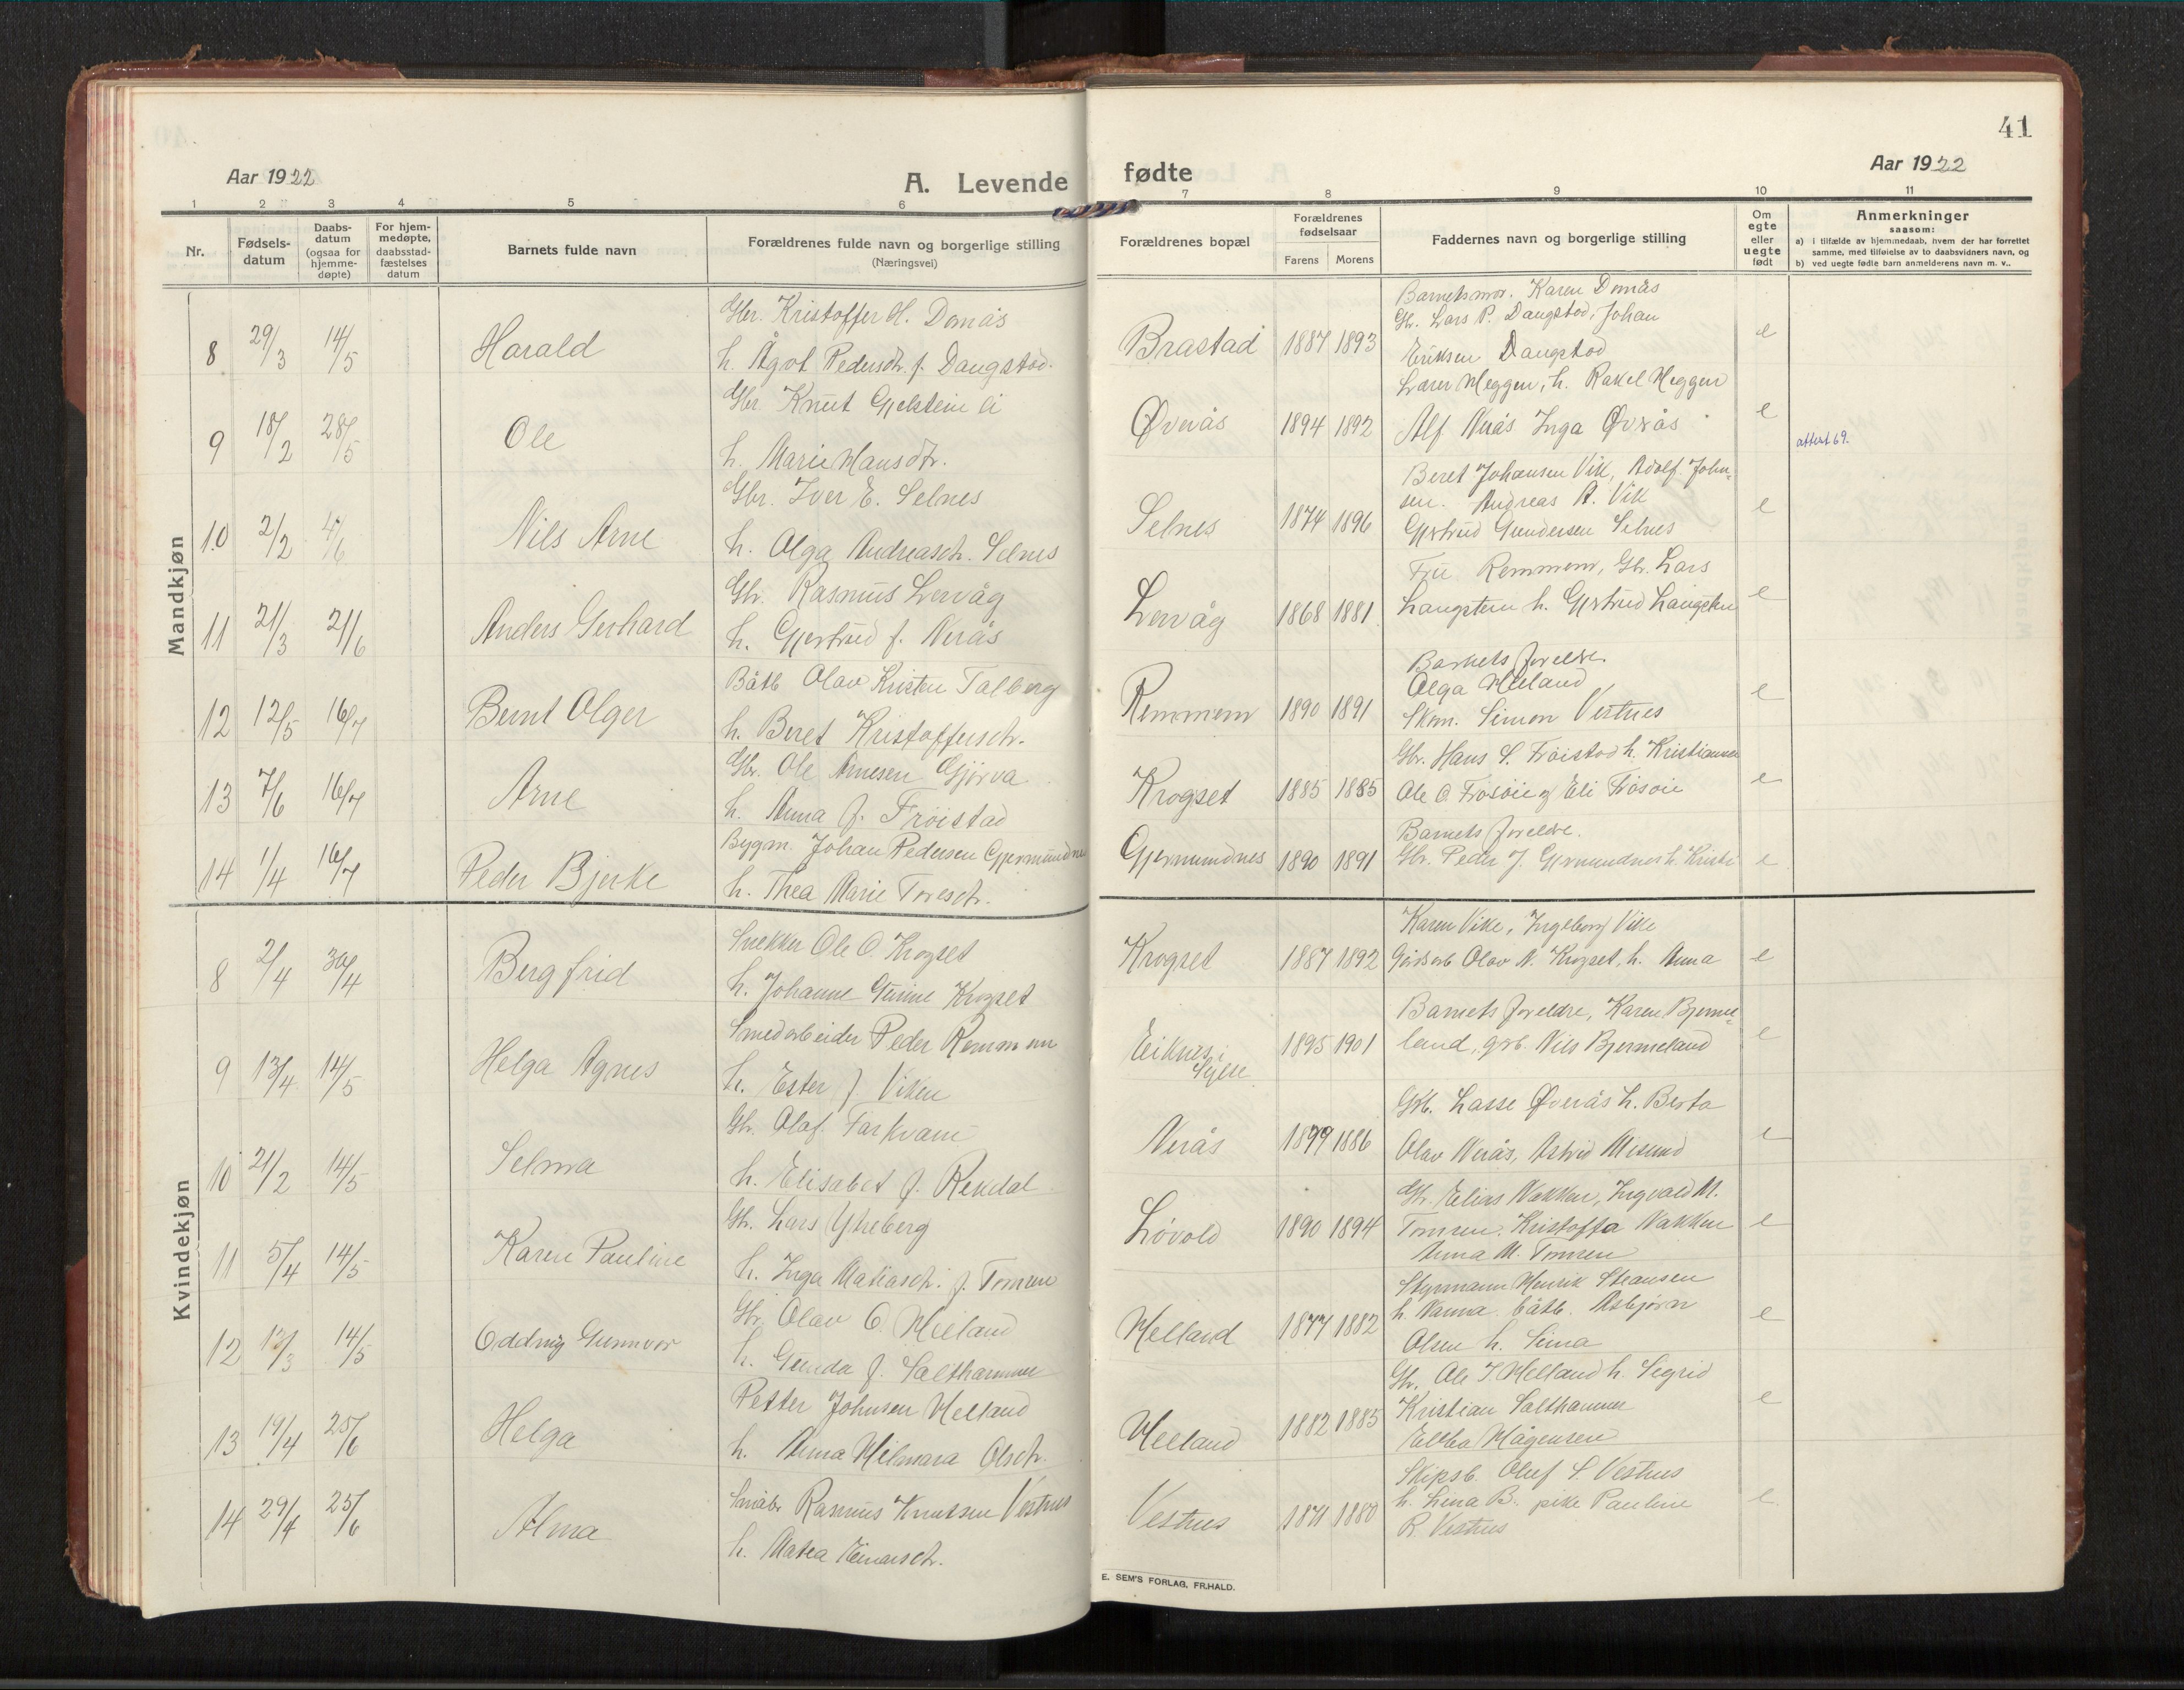 41
Aar 1922
A. Levende fødte
Aar 1922
1 2 3 4 5 6 7 8 9 10 11
Nr.
Fødsels-
datum
Daabs-
datum
(ogsaa for
hjemme-
døpte)
For hjem-
medøpte,
daabsstad-
fæstelses
datum
Barnets fulde navn
Forældrenes fulde navn og borgerlige stilling
(Næringsvei)
Forældrenes bopæl
Forældrenes
fødselsaar
Farens Morens
Faddernes navn og borgerlige stilling
Om
egte
eller
uegte
født
Anmerkninger
saasom:
a) i tilfælde av hjemmedaab, hvem der har forrettet
samme, med tilføielse av to daabsvidners navn, og
b) ved uegte fødte barn anmelderens navn m. v..
Mandkjøn
8 29/3 14/5 Harald
Gbr. Kristoffer H. Domås
h. Ågot Pedersdtr. f. Daugstad.
Brastad 1887 1893
Barnets mor. Karen Domås
Gbr. Lars P. Daugstad, Johan
Eriksen Daugstad
e
9 18/2 28/5 Ole
Gbr. Knut Gjelstenli
h. Marie Hansdtr.
Øverås 1894 1892
Lærer Meggen, h. Rakel Meggen
Alf Nerås Inga Øverås
e
attest 69.
10 2/2 4/6 Nils Arne
Gbr. Iver E. Selnes
h. Olga Andreasdtr. Selnes
Selnes 1874 1896
Beret Johansen Vik, Adolf John-
sen. Andreas A. Vik
Gjertrud Gundersen Selnes
e
11 21/3 21/6 Anders Gerhard
Gbr. Rasmus Lervåg
h. Gjertrud f. Nerås
Lervåg 1868 1881
Fru Remmem, Gbr. Lars
Langsten h. Gjertrud Langsten
e
12 12/5 16/7 Bernt Olger
Båtb. Olav Kristen Talberg
h. Beret Kristoffersdtr.
Remmem 1890 1891
Barnets foreldre.
Olga Helland
Skom. Simon Vestnes
e
13 7/6 16/7 Arne
Gbr. Ole Arnesen Gjörva
h. Anna f. Fröistad
Krogset 1885 1885
Gbr. Hans S. Fröistad h. Kristianna
Ole O. Frösöie og Eli Frösöie
e
14 1/4 16/7 Peder Bjerke
Bygm. Johan Pedersen Gjermundnes
h. Thea Marie Toresdtr.
Gjermundnes 1890 1891
Barnets foreldre.
Gbr. Peder J. Gjermundnes h. Kristi
e
Kvindekjøn
8 2/4 30/4 Bergfrid
Snekker Ole O. Krogset
h. Johanne Gurine Krogset
Krogset 1887 1892
Karen Vike, Ingeborg Vike
Gårdsarb. Olav N. Krogset, h. Anna
e
9 13/4 14/5 Helga Agnes
Smedarbeider Peder Remmem
h. Ester f. Viken
Eiknes i
Sylte
1895 1901
Barnets foreldre, Karen Bjerme-
land, Nils Bjermeland
e
10 21/2 14/5 Selma
Gbr. Olaf Tarkvam
h. Elisabet f. Rekdal
Nerås 1879 1886
Gbr. Lasse Øverås h. Berta
Olav Nerås, Astrid Misund
e
11 5/4 14/5 Karen Pauline
Gbr. Lars Ytreberg
h. Inga Matiasdtr. f. Tomren
Lövold 1890 1894
Gbr. Elias Nakken, Ingvald M.
Tomren. Kristoffa Nakken
Anna M. Tomren
e
12 13/3 14/5 Oddrny Gunnvor
Gbr. Olav O. Helland
h. Gunda f. Salthammer
Helland 1877 1882
Styrmann Henrik Steansen
h. Nanna båtb. Asbjörn
Olsen h. Sina
e
13 19/4 25/6 Helga
Petter Johnsen Helland
h. Anna Hilmara Olsdtr.
Helland 1882 1885
Gbr. Ole J. Helland h. Segrid
Kristian Salthammer
Hågensen
e
14 29/4 25/6 Alma
Småbr. Rasmus Knutsen Vestnes
h. Matea Einarsdtr.
Vestnes 1871 1880
Skipsb. Oluf S. Vestnes
h. Lina B. pike Pauline
R. Vestnes
e
E. SEM'S FORLAG, FR.HALD.